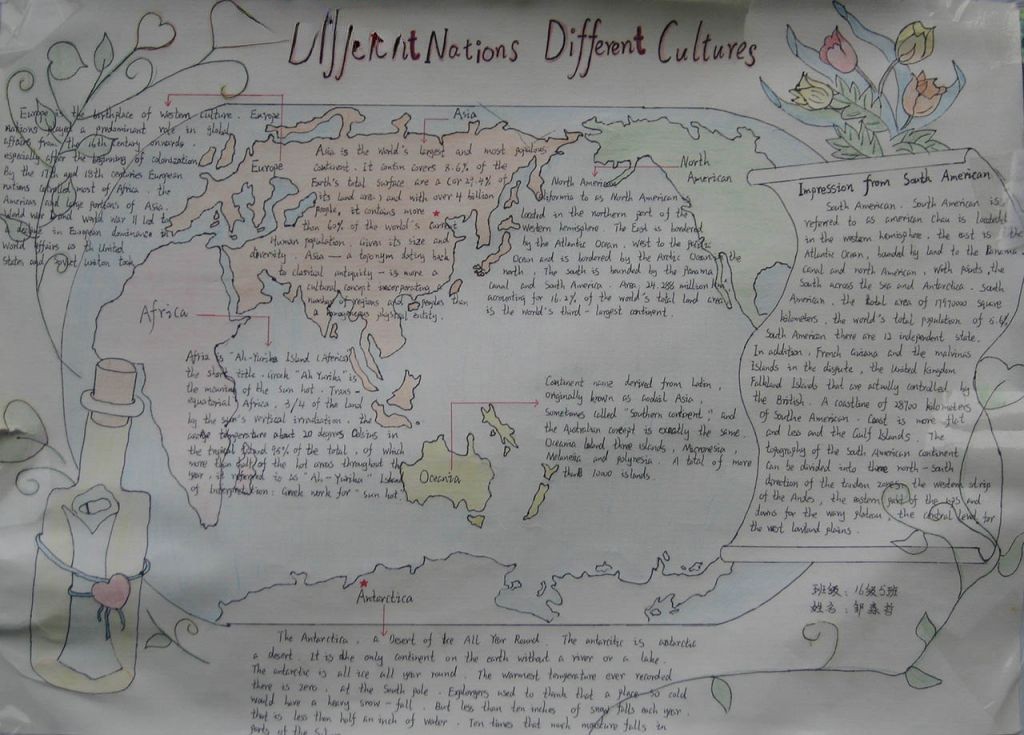 Different Nations Different Cultures
Europe is the birthplace of western culture. Europe
nations played a predominant role in global
affairs from the 16th century onwards.
especially after the beginning of colonization
By the 17th and 18th centuries European
nations controlled most of Africa. the
Americas and large portions of Asia.
World war I and world war II led to
decline in European dominance in
world affairs as th United
States and Soviet Union took
Europe
Asia
Asia is the world's largest and most populous
continent. It contin covers 8.6% of the
Earth's total surface are a (or 29.4% of
its land area) and with over 4 billion
people, it contains more
than 60% of the world's current
Human population. Given its size and
diversity. Asia — a toponym dating back
to classical antiquity — is more a
cultural concept incorporating a
number of regions and peoples than
a homogeneous physical entity.
North
American
North American
California to as North American
located in the northern part of the
western hemisphere. The East is bordered
by the Atlantic Ocean, West to the
Ocean and is bordered by the Arctic Ocean the
north. The south is bounded by the Panama
Canal and South America. Area 24.288 million
accounting for 16.2% of the world's total land area
is the world's third-largest continent.
Impression from South American
South American. South American is
referred to as american Chau is located
in the western hemisphere, the east is the
Atlantic Ocean, bounded by land to the Panama
canal and north American. With points, the
South across the sea and Antarctica. South
American. the total area of 17970000 square
kilometers, the world's total population of 5.6%
South American there are 12 independent state.
In addition. French Guiana and the malvinas
Islands in the dispute, the United Kingdom
Falkland Islands that are actually controlled by
the British. A coastline of 28700 kilometers
of Southe American. Coast is more flat
and less and the Gulf Islands. The
topography of the South American continent
can be divided into three north-south
direction of the tandem zones: the western strip
of the Andes, the eastern part of the ups and
downs for the wavy plateau, the central level for
the west lowland plains.
Africa
Africa is "Ah-Yurika Island (Africa)
the short title. Greek "Ah Yurika" is
the meaning of the sun hot. Trans-
equatorial Africa, 3/4 of the land
by the sun's vertical irradiation. the
average temperature about 20 degrees Celsius in
the tropical Found 95% of the total, of which
more than half of the hot areas throughout the
year, it referred to as "Ah-Yurika" Island
of Interpretation: Greek work for "sun hot"
Continent name derived from Latin,
originally known as Aodali Asia,
sometimes called "Southern continent" and
the Australian concept is exactly the same.
Oceania Island three islands, Micronesia,
Melanesia and polynesia. A total of more
than 1000 islands.
Oceania
Antarctica
The Antarctica, a Desert of Ice All Year Round. The antarctic is antarctica
a desert. It is the only continent on the earth without a river or a lake.
The antarctic is all ice all year round. The warmest temperature ever recorded
there is zero, at the South pole. Explorers used to think that a place so cold
would have a heavy snow-fall. But less than ten inches of snow falls each year.
that is less than half an inch of water. Ten times that much moisture falls in
parts of the
班级：16级5班
姓名：邹森哲